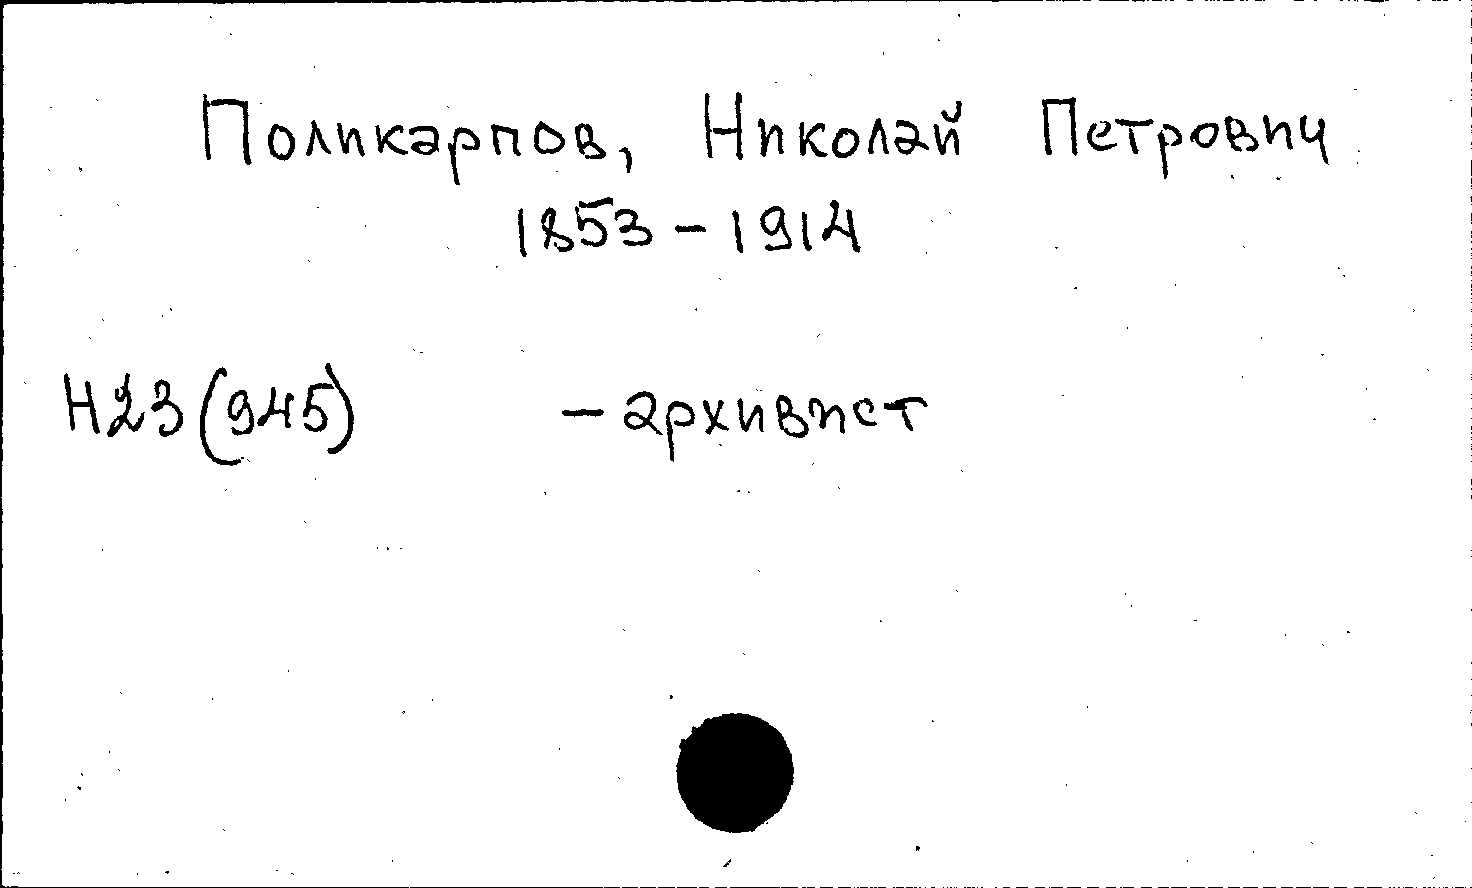 Поликарпов, Николай Петрович
1853 – 1914
Н23(945) – архивист